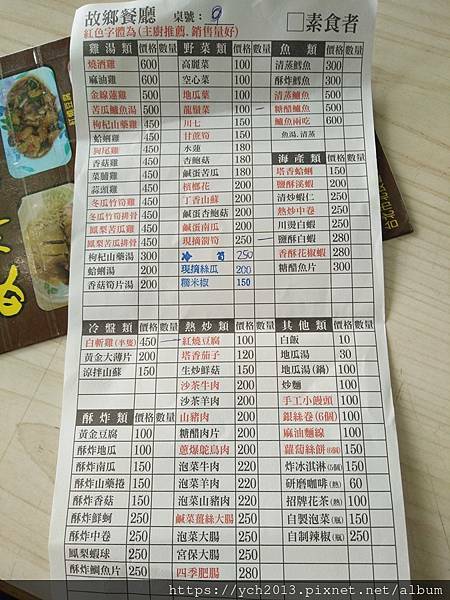 故鄉餐廳 桌號: 9 □素食者
紅色字體為(主廚推薦、銷售量好)
雞湯類 價格 數量
燒酒雞 600
麻油雞 600
金線蓮雞 450
苦瓜鱸魚湯 500
枸杞山藥雞 450
蛤蜊雞 450
狗尾雞 450
香菇雞 450
菜脯雞 450
蒜頭雞 450
冬瓜竹筍雞 450
冬瓜竹筍排骨 450
鳳梨苦瓜雞 450
鳳梨苦瓜排骨 450
枸杞山藥湯 300
蛤蜊湯 200
香菇筍片湯 200
野菜類 價格 數量
高麗菜 100
空心菜 100
地瓜葉 100
龍鬚菜 100
川七 150
甘蔗筍 150
水蓮 180
杏鮑菇 180
鹹蛋苦瓜 180
檳榔花 200
丁香山蘇 200
鹹蛋杏鮑菇 200
鹹蛋南瓜 200
現摘箭筍 250
冷筍 250
現摘絲瓜 200
糯米椒 150
魚類 價格 數量
清蒸鱈魚 300
酥炸鱈魚 300
清蒸鱸魚 500
糖醋鱸魚 500
鱸魚兩吃 600
魚湯.清蒸
海產類 價格 數量
塔香蛤蜊 150
鹽酥溪蝦 200
清炒蝦仁 250
熱炒中卷 250
川燙白蝦 280
鹽酥白蝦 280
香酥花椒蝦 280
糖醋魚片 300
冷盤類 價格 數量
白斬雞(半隻) 450
黃金大薄片 200
涼拌山蘇 150
酥炸類 價格 數量
黃金豆腐 100
酥炸地瓜 100
酥炸南瓜 150
酥炸山藥捲 150
酥炸香菇 150
酥炸鮮蚵 250
酥炸中卷 250
鳳梨蝦球 250
酥炸鯛魚片 250
熱炒類 價格 數量
紅燒豆腐 100
塔香茄子 120
生炒鮮菇 150
沙茶牛肉 200
沙茶羊肉 200
山豬肉 200
糖醋肉片 200
蔥爆鴕鳥肉 200
泡菜牛肉 220
泡菜羊肉 220
泡菜山豬肉 220
鹹菜薑絲大腸 250
泡菜大腸 250
宮保大腸 250
四季肥腸 280
其他類 價格 數量
白飯 10
地瓜湯 30
地瓜湯(鍋) 100
炒麵 100
手工小饅頭 100
銀絲卷(6個) 100
麻油麵線 100
蘿蔔絲餅(6個) 150
炸冰淇淋(5個) 150
研磨咖啡(熱) 60
招牌花茶(熱) 100
自製泡菜(瓶) 150
自製辣椒(瓶) 150
https://ych2013.pixnet.net/album